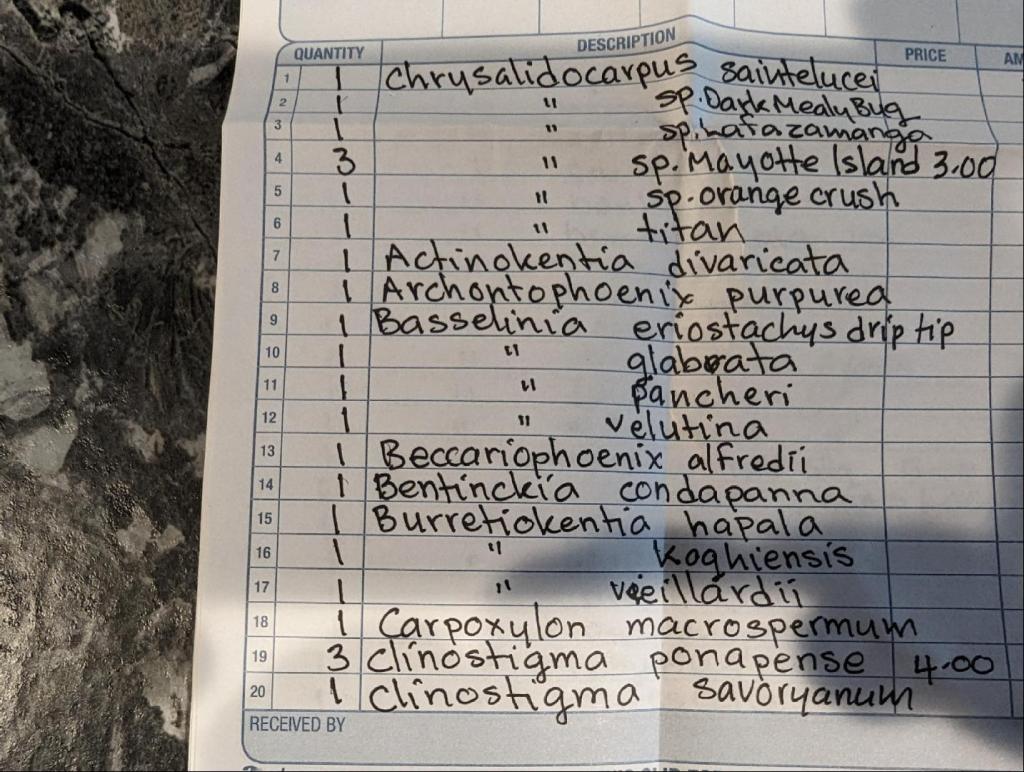 QUANTITY DESCRIPTION PRICE AM
1 1 Chrysalidocarpus saintelucei
2 1 " sp. Dark Mealy Bug
3 1 " sp. hafazamanga
4 3 " sp. Mayotte Island 3.00
5 1 " sp. orange crush
6 1 " titan
7 1 Actinokentia divaricata
8 1 Archontophoenix purpurea
9 1 Basselinia eriostachys drip tip
10 1 " glabrata
11 1 " pancheri
12 1 " velutina
13 1 Beccariophoenix alfredii
14 1 Bentinckia condapanna
15 1 Burretiokentia hapala
16 1 " koghiensis
17 1 " vieillardii
18 1 Carpoxylon macrospermum
19 3 Clinostigma ponapense 4.00
20 1 Clinostigma savoryanum
RECEIVED BY